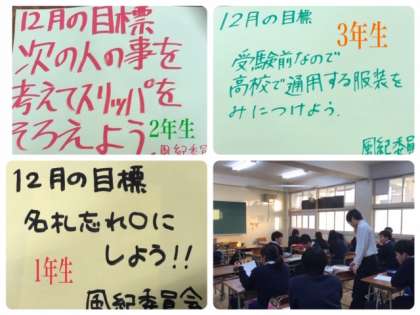 12月の目標
次の人の事を
考えてスリッパを
そろえよう
2年生
風紀委員会
12月の目標
3年生
受験前なので
高校で通用する服装を
みにつけよう.
風紀委員会
12月の目標
名札忘れ〇に
しよう!!
1年生
風紀委員会